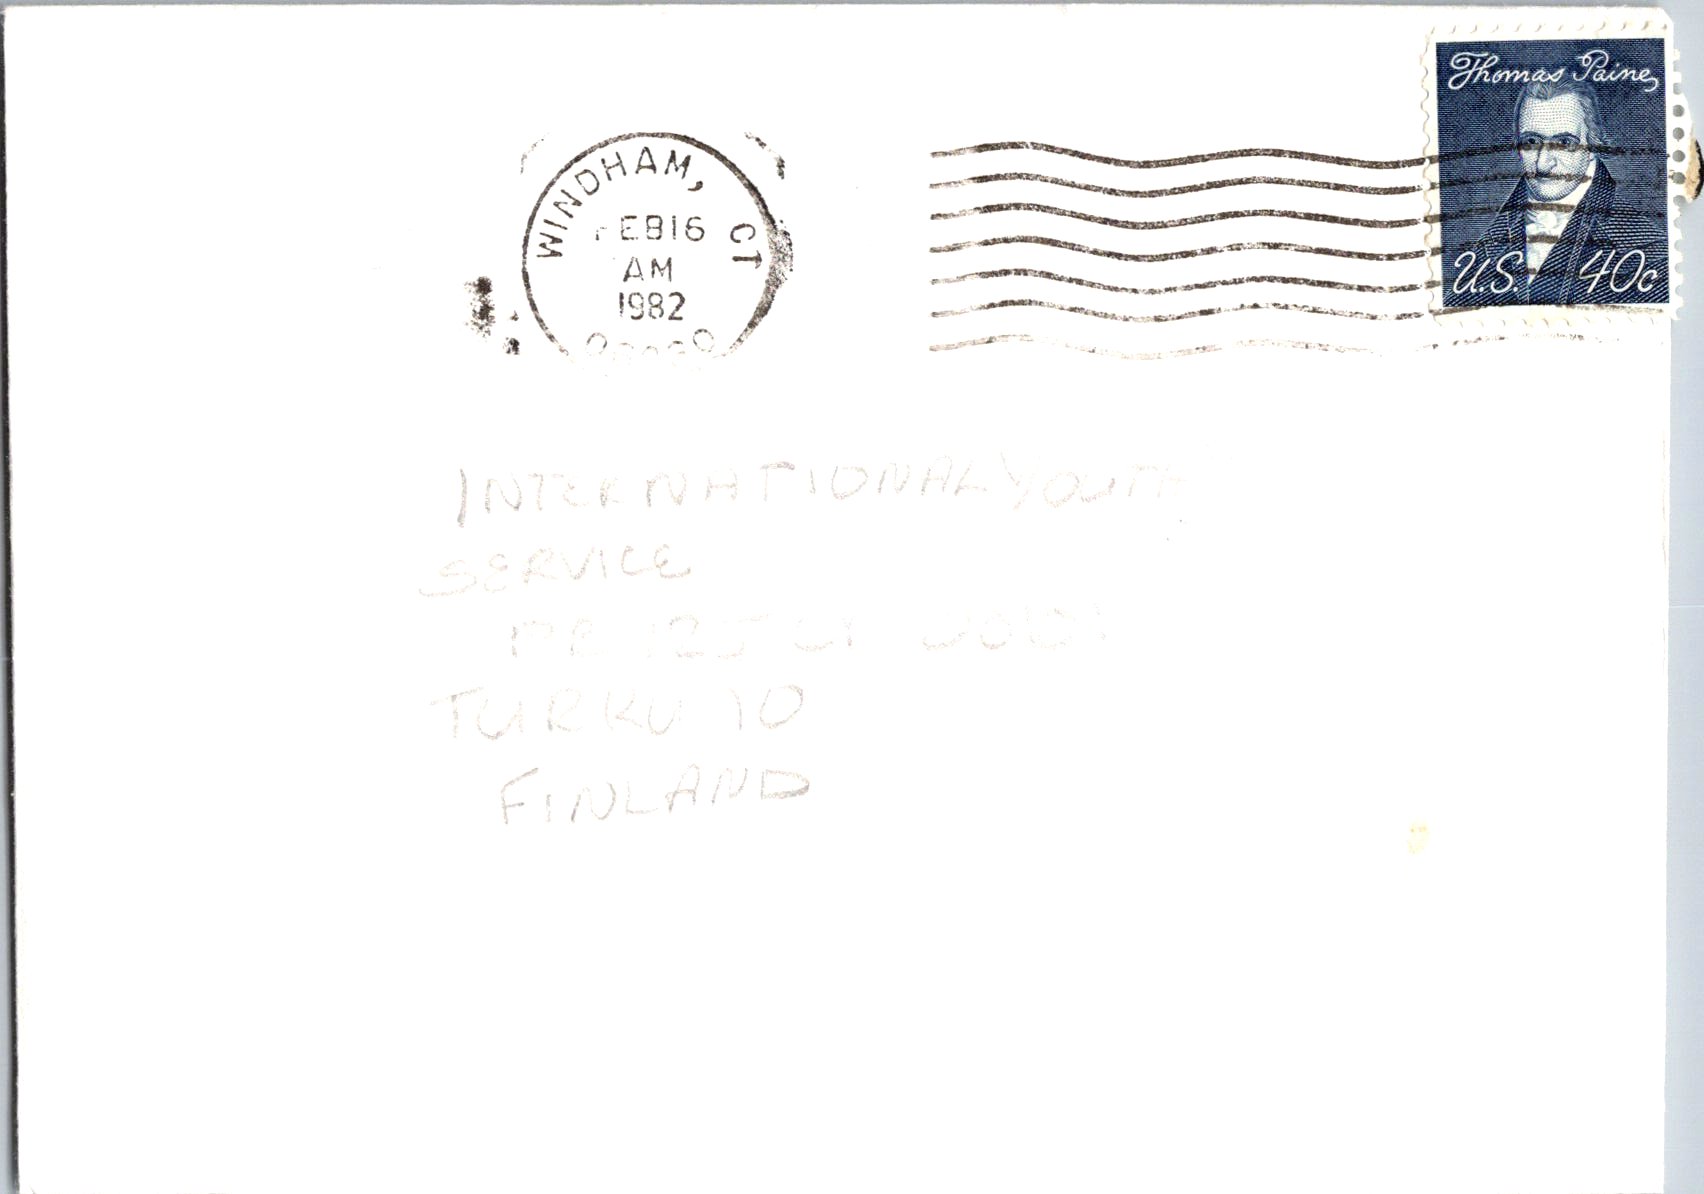 Thomas Paine
U.S. 40c
WINDHAM, CT
FEB 16
AM
1982
INTERNATIONAL YOUTH
SERVICE
TURKU 10
FINLAND